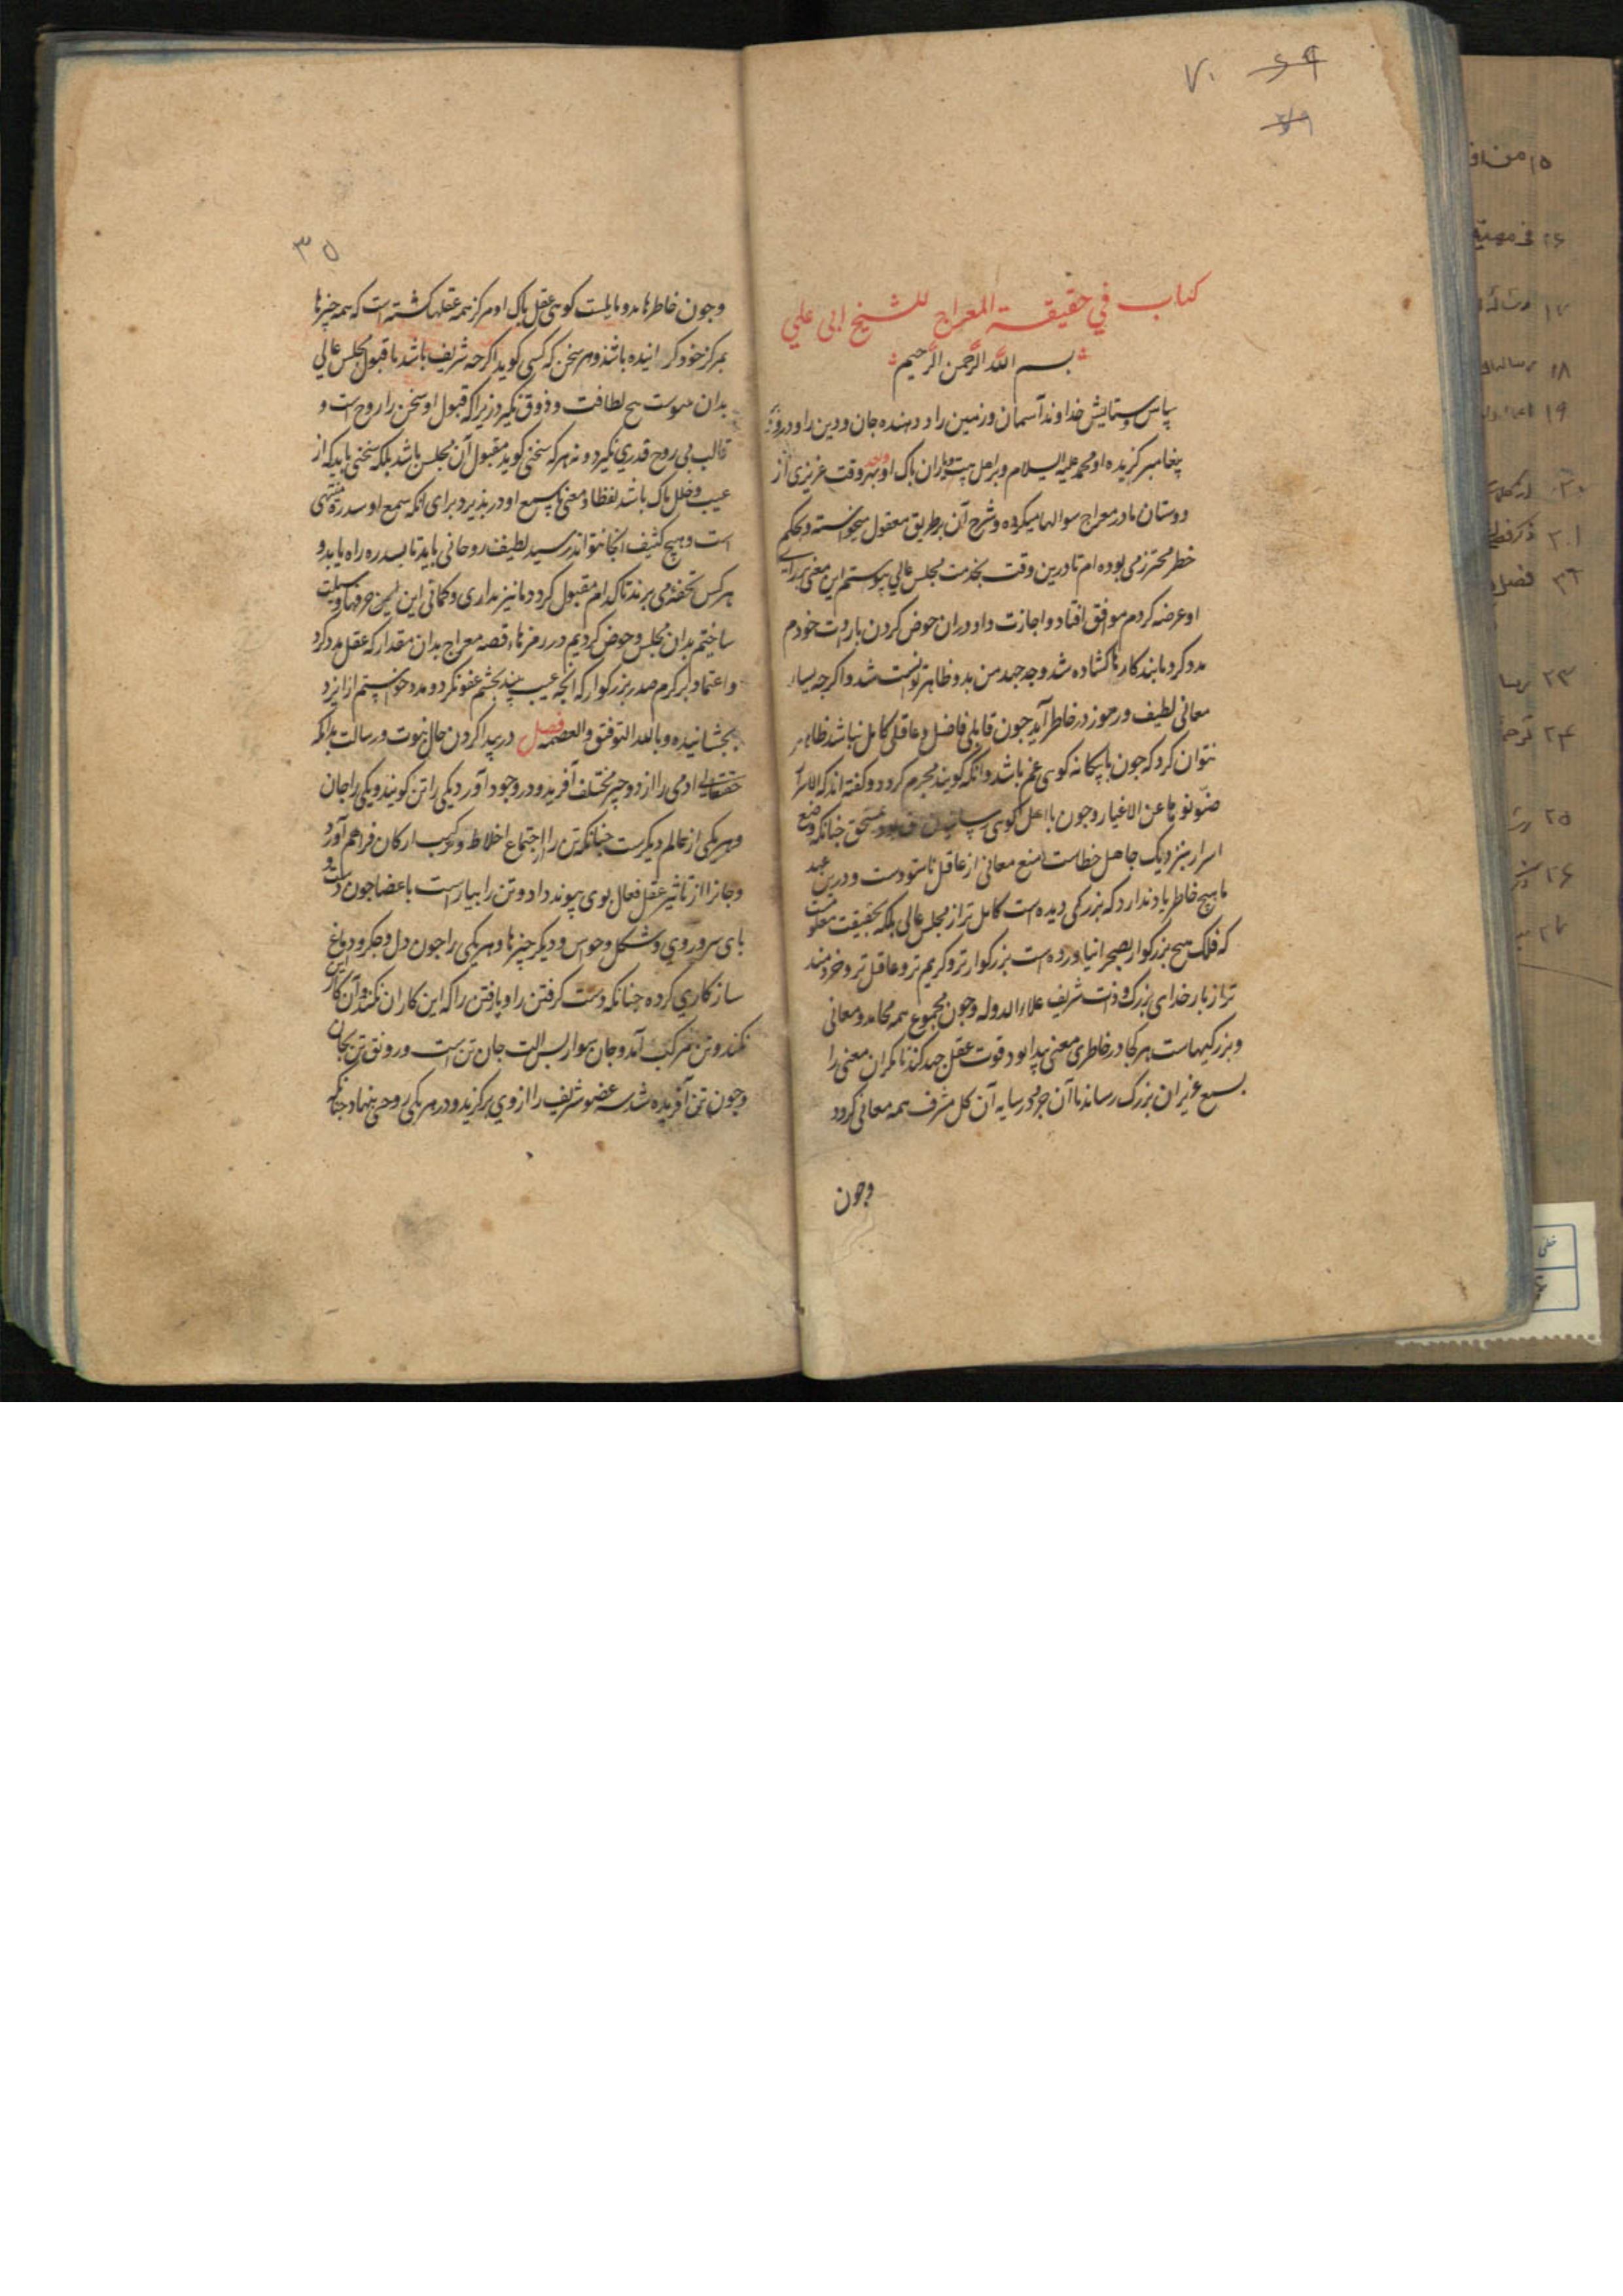 ۷۰ ۶۹
کتاب في حقيقة المعراج للشيخ ابی علي
بسم الله الرحمن الرحيم
سپاس و ستایش خداوند آسمان و زمین را و دهنده جان و دین را و درود
پیغامبر کزیده او محمد علیه السلام و بر اهل بیت و یاران پاک او بهر وقت عزیزی از
دوستان ما در معراج سوالها میکرد و شرح آن بر طریق معقول میخواسته و بحکم
خطر محترز می بوده ام تا درین وقت بخدمت مجلس عالي پیوستم این معنی بر رای
او عرضه کردم موافق افتاد و اجازت داد و در ان خوض کردن باروت خودم
مدد کرد تا بند کارها کشاده شد و جد و جهد من بدو ظاهر توانست شد و اکرچه بسیار
معانی لطیف و رموز در خاطر آید چون قابلی فاضل و عاقلی کامل نباشد ظاهر
نتوان کرد که چون با بیکانه کوی غمز باشد وانکه کوینده مجرم کردد و کفته اند که الاسرار
صونوها عن الاغیار و چون با اهل کوی مستحق چنانکه وضع
اسرار بنزدیک جاهل خطاست منع معانی از عاقل ناستوده است و درین عهد
ما هیچ خاطر یاد ندارد که بزرکی دیده است کامل تر از مجلس عالی بلکه بحقیقت معلومست
که فلک هیچ بزرکوار بصحرا نیاورده است بزرکوارتر و کریم تر و عاقل تر و خردمند
تر از بار خدای بزرک و ذات شریف علاء الدوله و چون مجموع همه محامد و معانی
و بزرکیهاست هر کجا در خاطری معنی پیدا بود قوت عقل جهد کند تا مکر ان معنی را
بسمع عزیز ان بزرک رساند تا آن جزو در سایه آن کل مشرف همه معانی کردد
وچون
۳۵
وچون خاطرها بدو مایلست کوئی عقل پاک او مرکز همه عقلها کشته است که همه چیزها
بمرکز خود کرانیده باشد و هر سخن که کسی کوید اکرچه شریف باشد تا قبول مجلس عالی
بدان نپیوست هیچ لطافت و ذوق نکیرد زیرا که قبول او سخن را روح است و
قالب بی روح قدری نکیرد و نه هر که سخنی کوید مقبول آن مجلس باشد بلکه سخنی باید که از
عیب و خلل پاک باشد لفظا و معنی تا سمع او در پذیرد برای انکه سمع او سدرة منتهی
است و هیچ کثیف انجا نتواند رسید لطیف روحانی باید تا بسدره راه یابد و
هر کس تحفه می برند تا کدام مقبول کردد ما نیز مداری و کماتی این حرفها وسیلت
ساختیم بدان مجلس و خوض کردیم در رمزهاء قصه معراج بدان مقدار که عقل مدد کرد
و اعتماد بر کرم صدر بزرکوار که انچه عیب بیند بچشم عفو نکرد و مدد خواستیم از ایزد
بخشانیده و بالله التوفیق والعصمة فصل در پیدا کردن حال نبوت و رسالت بدانکه
حقتعالی ادمی را از دو چیز مختلف آفرید و در وجود آورد یکی را تن کویند و یکی را جان
و هر یکی از عالم دیکرست چنانکه تن را از اجتماع اخلاط و ترکیب ارکان فراهم آورد
و جانرا از تاثیر عقل فعال بوی پیوند داد و تن را بیاراست باعضا چون دست و
پای سر و روی و شکل و حواس و دیکر چیزها و هر یکی را چون دل و جکر و دماغ
ساز کاری کرده چنانکه دست کرفتن را و پا رفتن را که این کار ان نکند و آن کار این
نکند و تن مرکب آمد و جان سوار پس الت جان تن است و رونق تن بجان
و چون تن آفریده شد سه عضو شریف را از وی برکزید و در هر یکی روحی بنهاد چنانکه